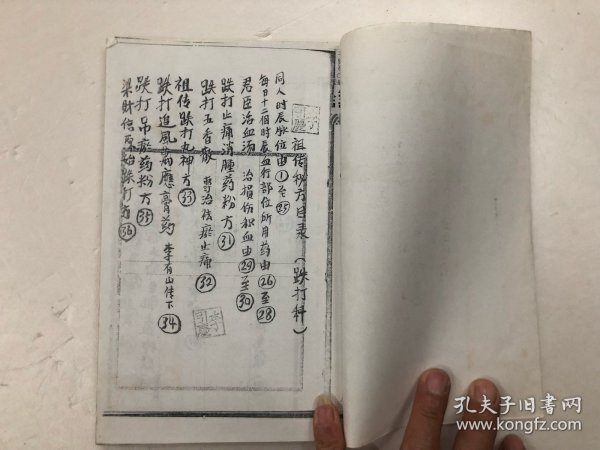 祖传秘方目录（跌打科）
同人时辰脉位由①至㉕
每日十二个时辰血行部位所用药由㉖至㉘
君臣治血汤 治损伤积血由㉙至㉚
跌打止痛消肿药粉方㉛
跌打五香散 专治祛瘀止痛㉜
祖传跌打丸神方㉝
跌打追风万应膏药 李有山传下㉞
跌打吊瘀药粉方㉟
梁财信原始跌打方㊱
孔夫子旧书网
www.kongfz.com